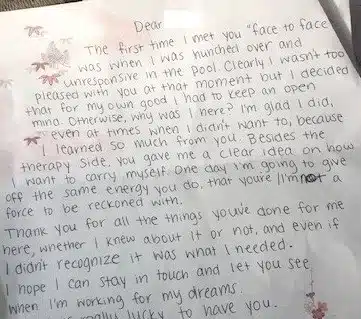 Dear
The first time I met you "face to face
was when I was hunched over and
unresponsive in the pool. Clearly I wasn't too
pleased with you at that moment but I decided
that for my own good I had to keep an open
mind. Otherwise, why was I here? I'm glad I did,
even at times when I didn't want to, because
I learned so much from you. Besides the
therapy side, you gave me a clear idea on how
I want to carry myself. One day I'm going to give
off the same energy you do, that youre/I'm not a
force to be reckoned with.
Thank you for all the things you've done for me
here, whether I knew about it or not, and even if
I didn't recognize it was what I needed.
I hope I can stay in touch and let you see
when I'm working for my dreams.
really lucky to have you.